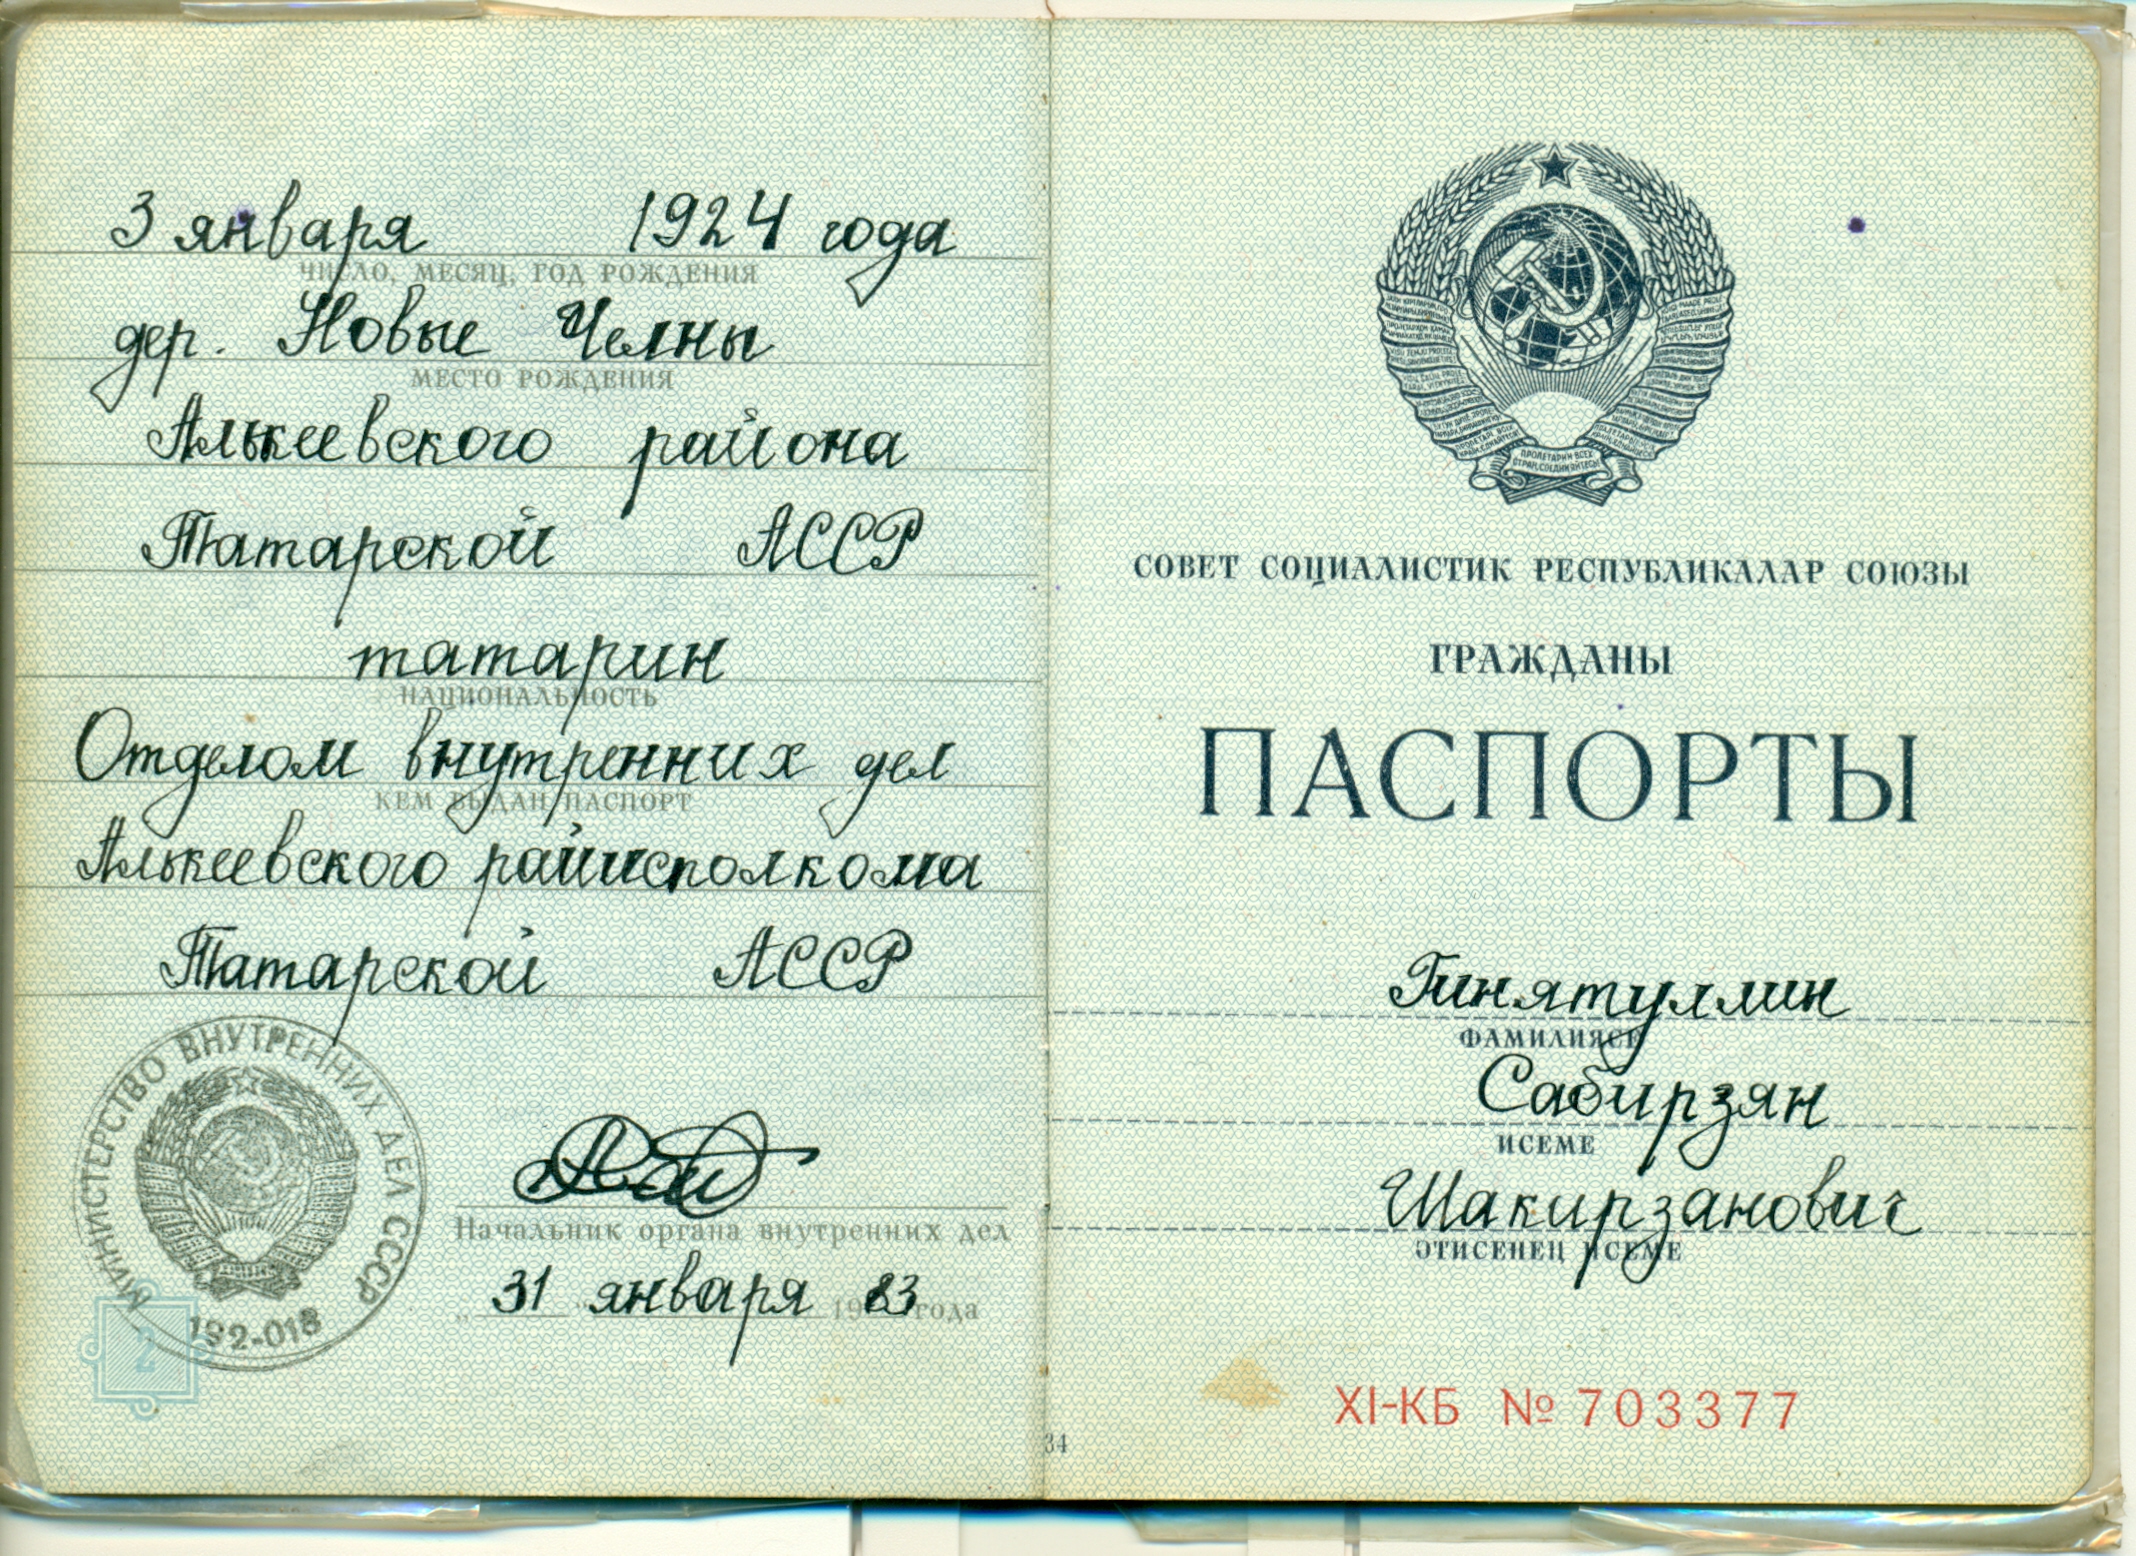 3 января 1924 года
ЧИСЛО, МЕСЯЦ, ГОД РОЖДЕНИЯ
дер. Новые Челны
МЕСТО РОЖДЕНИЯ
Алькеевского района
Татарской АССР
татарин
НАЦИОНАЛЬНОСТЬ
Отделом внутренних дел
КЕМ ВЫДАН ПАСПОРТ
Алькеевского райисполкома
Татарской АССР
МИНИСТЕРСТВО ВНУТРЕННИХ ДЕЛ СССР
192-018
Начальник органа внутренних дел
„ 31 “ января 1983 года
2
ПРОЛЕТАРИИ ВСЕХ
СТРАН, СОЕДИНЯЙТЕСЬ!
СОВЕТ СОЦИАЛИСТИК РЕСПУБЛИКАЛАР СОЮЗЫ
ГРАЖДАНЫ
ПАСПОРТЫ
Гинятуллин
ФАМИЛИЯСЕ
Сабирзян
ИСЕМЕ
Шакирзанович
ӘТИСЕНЕҢ ИСЕМЕ
XI-КБ № 703377
34